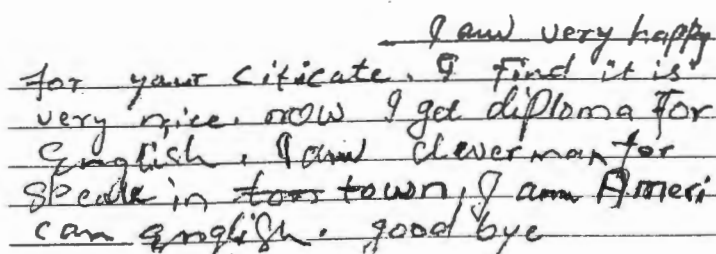 I am very happy
for your citicate. I find it is
very nice. now I get diploma for
English. I am clever man for
speak in town, I am Ameri
can english. good bye